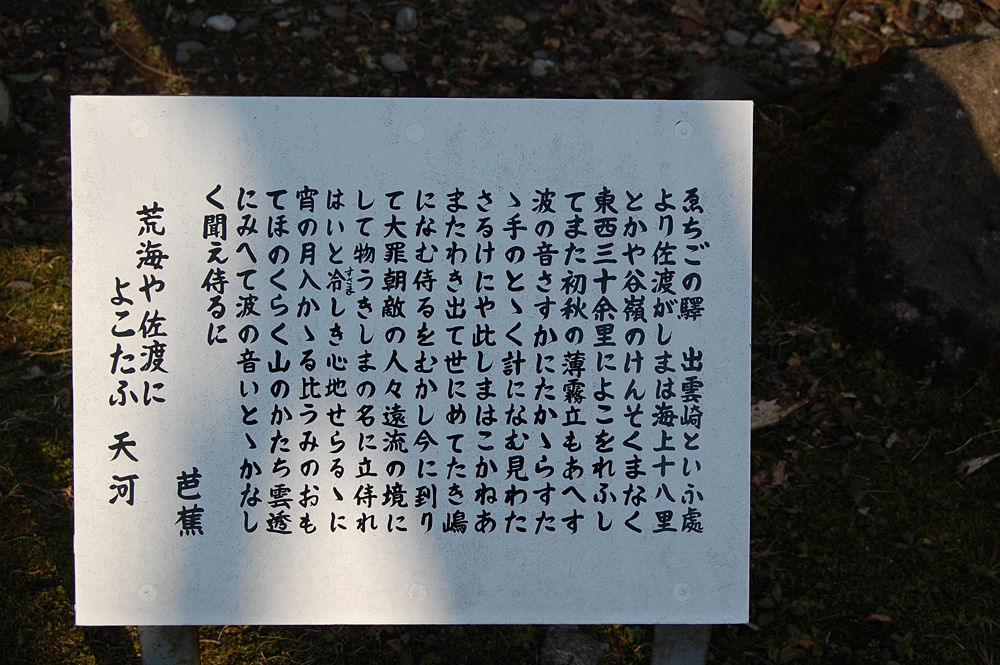 ゑちごの驛　出雲崎といふ處
より佐渡がしまは海上十八里
とかや谷嶺のけんそくまなく
東西三十余里によこをれふし
てまた初秋の薄霧立もあへす
波の音さすかにたかゝらすた
ゝ手のとゝく計になむ見わた
さるけにや此しまはこかねあ
またわき出て世にめてたき嶋
になむ侍るをむかし今に到り
て大罪朝敵の人々遠流の境に
して物うきしまの名に立侍れ
はいと冷しき心地せらるゝに
すさま
宵の月入かゝる比うみのおも
てほのくらく山のかたち雲透
にみへて波の音いとゝかなし
く聞え侍るに
芭蕉
荒海や佐渡に
よこたふ　天河